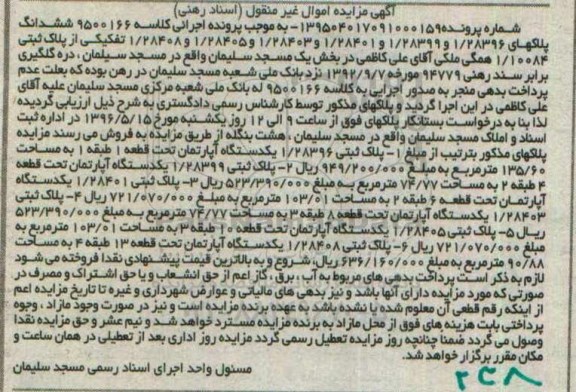 آگهی مزایده اموال غیر منقول (اسناد رهنی)
شماره پرونده۱۳۹۵۰۴۰۱۷۰۹۱۰۰۰۱۵۹- به موجب پرونده اجرائی کلاسه ۹۵۰۰۱۶۶ ششدانگ
پلاکهای ۱/۲۸۳۹۶ و ۱/۲۸۳۹۹ و ۱/۲۸۴۰۱ و ۱/۲۸۴۰۳ و ۱/۲۸۴۰۵ و ۱/۲۸۴۰۸ تفکیکی از پلاک ثبتی
۱/۱۰۰۸۴ همگی ملکی آقای علی کاظمی در بخش یک مسجد سلیمان واقع در مسجد سلیمان ، دره گلگیری
برابر سند رهنی ۹۴۷۷۹ مورخه ۱۳۹۲/۹/۷ نزد بانک ملی شعبه مسجد سلیمان در رهن بوده که بعلت عدم
پرداخت بدهی منجر به صدور اجرایی به کلاسه ۹۵۰۰۱۶۶ له بانک ملی شعبه مرکزی مسجد سلیمان علیه آقای
علی کاظمی در این اجرا گردید و پلاکهای مذکور توسط کارشناس رسمی دادگستری به شرح ذیل ارزیابی گردیده
لذا بنا به درخواست بستانکار پلاکهای فوق از ساعت ۹ الی ۱۲ روز یکشنبه مورخ ۱۳۹۶/۵/۱۵ در اداره ثبت
اسناد و املاک مسجد سلیمان واقع در مسجد سلیمان ، هشت بنگله از طریق مزایده به فروش می رسند مزایده
پلاکهای مذکور بترتیب از مبلغ ۱- پلاک ثبتی ۱/۲۸۳۹۶ یکدستگاه آپارتمان تحت قطعه ۱ طبقه ۱ به مساحت
۱۳۵/۶۰ مترمربع به مبلغ ۹۴۹/۲۰۰/۰۰۰ ریال ۲- پلاک ثبتی ۱/۲۸۳۹۹ یکدستگاه آپارتمان تحت قطعه
۴ طبقه ۲ به مساحت ۷۴/۷۷ مترمربع به مبلغ ۵۲۳/۳۹۰/۰۰۰ ریال ۳- پلاک ثبتی ۱/۲۸۴۰۱ یکدستگاه
آپارتمان تحت قطعه ۶ طبقه ۲ به مساحت ۱۰۳/۰۱ مترمربع به مبلغ ۷۲۱/۰۷۰/۰۰۰ ریال ۴- پلاک ثبتی
۱/۲۸۴۰۳ یکدستگاه آپارتمان تحت قطعه ۸ طبقه ۳ به مساحت ۷۴/۷۷ مترمربع به مبلغ ۵۲۳/۳۹۰/۰۰۰
ریال ۵- پلاک ثبتی ۱/۲۸۴۰۵ یکدستگاه آپارتمان تحت قطعه ۱۰ طبقه ۳ به مساحت ۱۰۳/۰۱ مترمربع به
مبلغ ۷۲۱/۰۷۰/۰۰۰ ریال ۶- پلاک ثبتی ۱/۲۸۴۰۸ یکدستگاه آپارتمان تحت قطعه ۱۳ طبقه ۴ به مساحت
۹۰/۸۸ مترمربع به مبلغ ۶۳۶/۱۶۰/۰۰۰ ریال شروع و به بالاترین قیمت پیشنهادی نقدا فروخته می شود
لازم به ذکر است پرداخت بدهی های مربوط به آب ، برق ، گاز اعم از حق انشعاب و یا حق اشتراک و مصرف در
صورتی که مورد مزایده دارای آنها باشد و نیز بدهی های مالیاتی و عوارض شهرداری و غیره تا تاریخ مزایده اعم
از اینکه رقم قطعی آن معلوم شده یا نشده باشد به عهده برنده مزایده است و نیز در صورت وجود مازاد ، وجوه
پرداختی بابت هزینه های فوق از محل مازاد به برنده مزایده مسترد خواهد شد و نیم عشر و حق مزایده نقدا
وصول می گردد ضمنا چنانچه روز مزایده تعطیل رسمی گردد مزایده روز اداری بعد از تعطیلی در همان ساعت و
مکان مقرر برگزار خواهد شد.
مسئولی واحد اجرای اسناد رسمی مسجد سلیمان